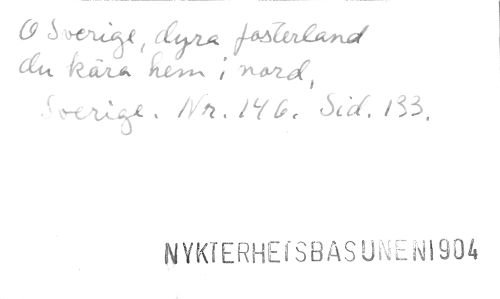 O Sverige, dyra fosterland
du kära hem i nord,
Sverige. Nr. 146. Sid. 133.
NYKTERHETSBASUNEN 1904